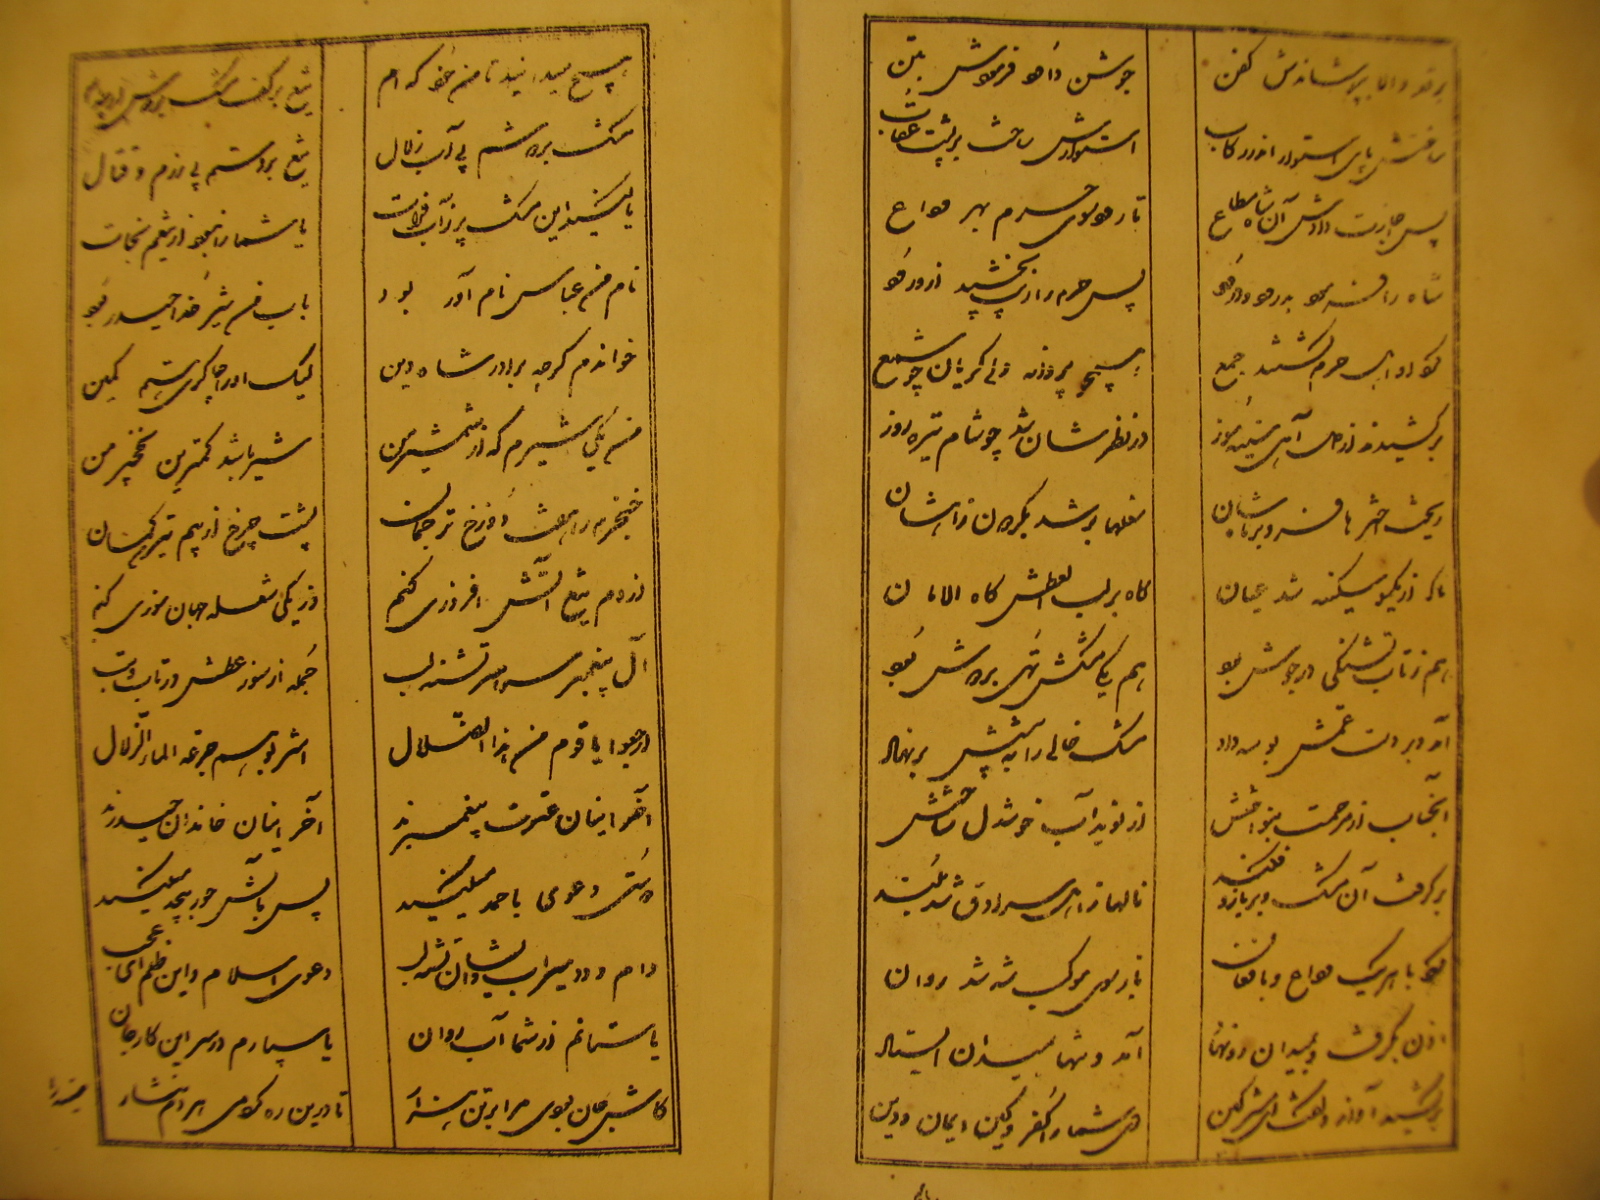 برقد والا بپوشاندش کفن جوشن داود فرمودش بتن
ساختش پای استوار اندر رکاب استوارش ساخت بر پشت عقاب
پس اجازت دادش آن شاه مطاع تا رود سوی حرم بهر وداع
شاه را بدرود پس حرم را زیب بخشید از ورود
گرد او اهل حرم گشتند جمع همچو پروانه ولی گریان چو شمع
برکشیدند از دل آهی سینه سوز در نظرشان شد چو شام تیره روز
ریخت اخترها شعلها بر شد بگردون ز آهشان
از یکسو سکینه شد عیان گاه بر لب العطش گاه الامان
هم ز تاب تشنگی در جوش بود هم یکی مشکش تهی بر دوش بود
آمد و بر دست عمش بوسه داد مشک خالی را به پیشش بر نهاد
آنجناب از مرحمت بنواختش از نوید آب خوشدل ساختش
بر گرفت آن مشک و بر بازو فکند نالها ز اهل سرادق شد بلند
کرد با هر یک وداع و با فغان تا بسوی موکب شه شد روان
اذن بگرفت و بمیدان رو نهاد آمد و تنها بمیدان ایستاد
برکشید آواز کای شمارا کفر و کین ایمان و دین
هیچ میدانید تا من خود که ام تیغ بر کف مشک بر دوش
مشک بر دوشم پی آب زلال تیغ بر دستم پی رزم و قتال
یا کنید این مشک پر ز آب فرات یا شما را نبود از تیغم نجات
نام من عباس نام آور بود باب من شیر خدا حیدر بود
خواندم گرچه برادر شاه دین لیک او را چاکری هستم کمین
من یکی شیرم که از شمشیر من شیر باشد کمترین نخجیر من
خنجرم را دوزخ ترجمان پشت چرخ از بیم تیرم کمان
از دم تیغ آتش افروزی کنم وز یکی شعله جهان سوزی کنم
آل پیغمبر سراسر تشنه لب جمله از سوز عطش در تاب و تب
ارجعوا یا قوم من هذا الضلال اشربوهم جرعه الماء الزلال
آخر اینان عترت پیغمبرند آخر اینان خاندان حیدرند
دوستی دعوی با احمد میکنید پس بآلش جور بیحد میکنید
دام و دد سیراب و ایشان تشنه لب دعوی اسلام و این ظلم ای عجب
یا ستانم از شما آب روان یا سپارم در سر این کار جان
کاش جان بودی مرا بر تن هزار تا درین ره کردمی هر دم نثار